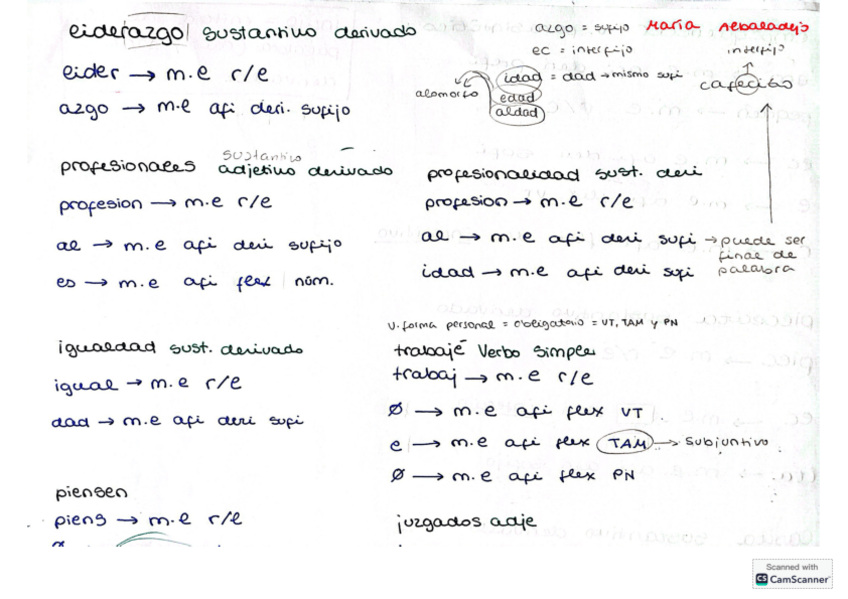 liderazgo sustantivo derivado
lider → m.e r/e
azgo → m.e afi deri. sufijo
azgo = sufijo María Rebaladejo
ec = interfijo
interfijo
idad = dad → mismo sufi
alomorfo
edad
aldad
cafecito
sustantivo
profesionales adjetivo derivado
profesion → m.e r/e
al → m.e afi deri sufijo
es → m.e afi flex núm.
profesionalidad sust. deri
profesion → m.e r/e
al → m.e afi deri sufi → puede ser final de palabra
idad → m.e afi deri sufi
igualdad sust. derivado
igual → m.e r/e
dad → m.e afi deri sufi
V. forma personal = obligatorio = VT, TAM y PN
trabajé Verbo simple
trabaj → m.e r/e
Ø → m.e afi flex VT
e → m.e afi flex TAM → subjuntivo
Ø → m.e afi flex PN
piensen
piens → m.e r/e
juzgados adje
Scanned with
CS CamScanner